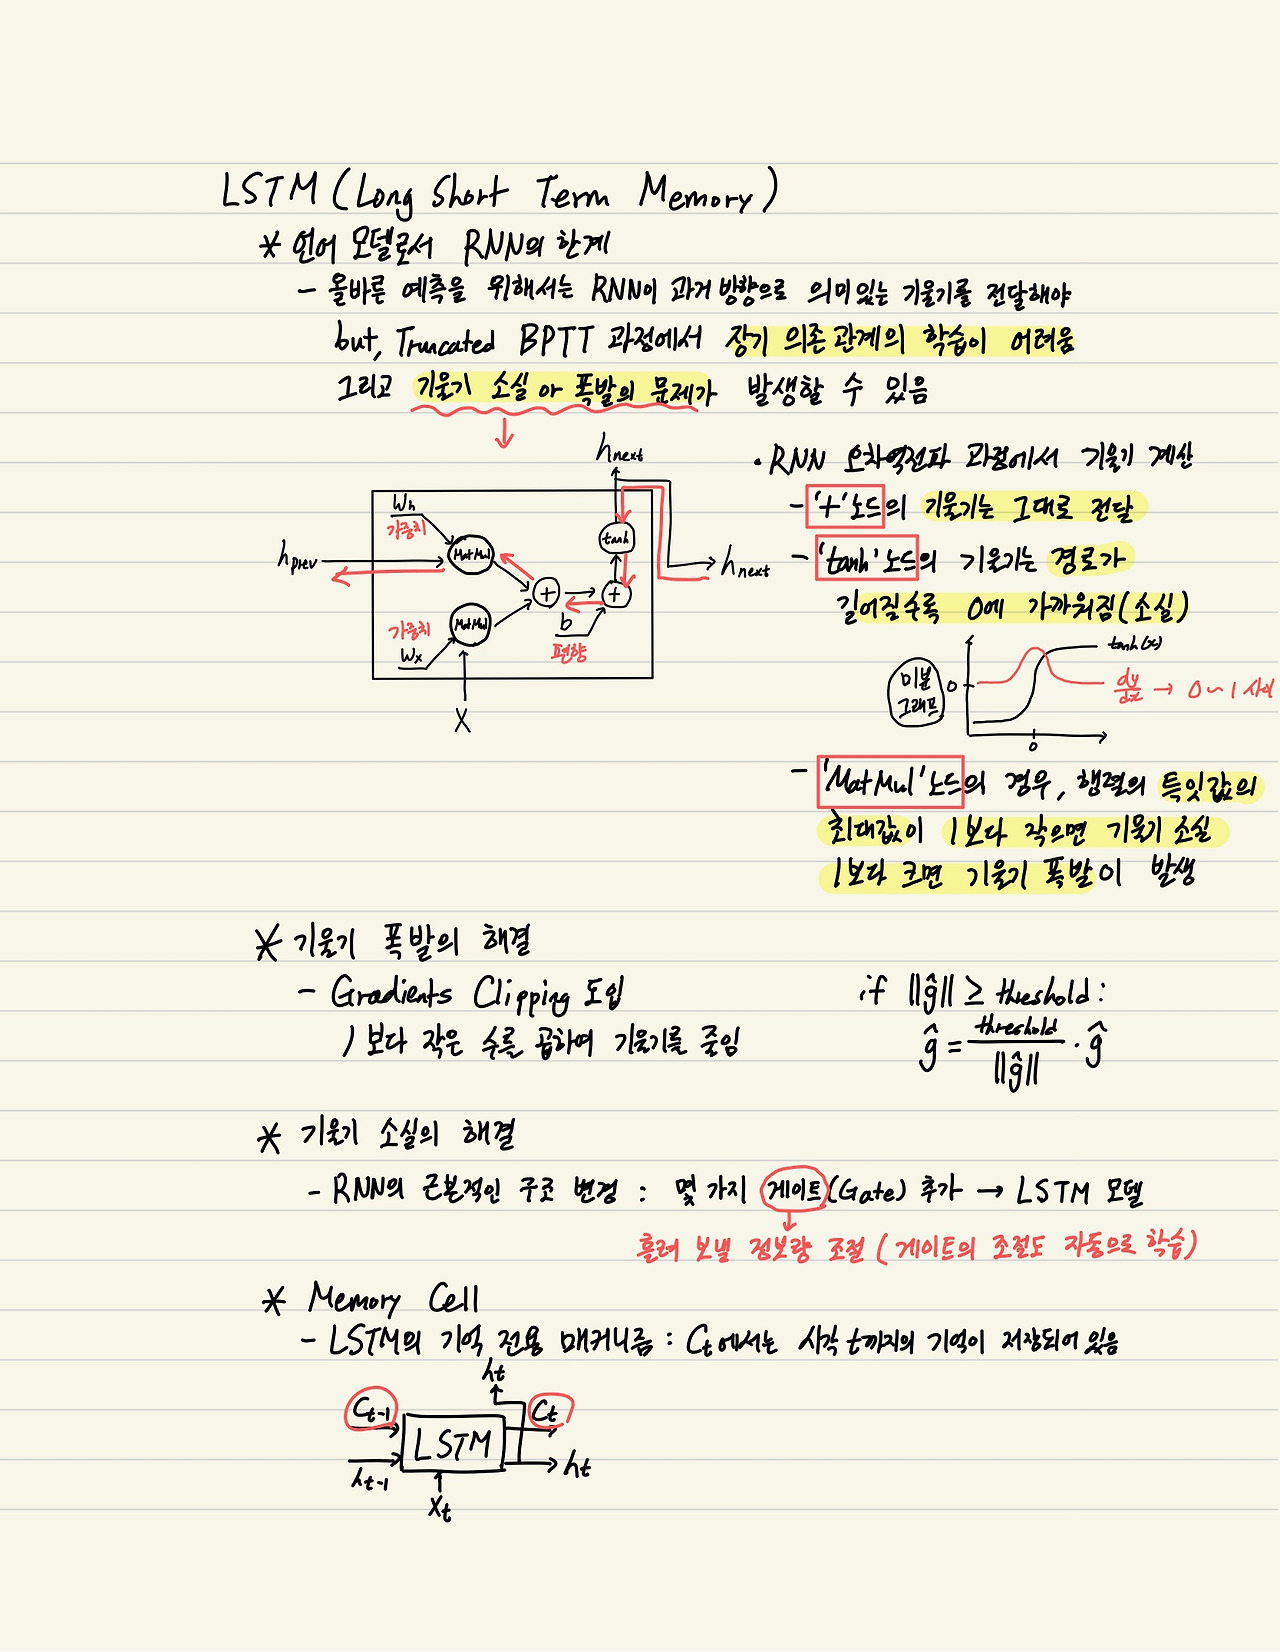 LSTM (Long Short Term Memory)
* 언어 모델로서 RNN의 한계
- 올바른 예측을 위해서는 RNN이 과거 방향으로 의미있는 기울기를 전달해야
but, Truncated BPTT 과정에서 장기 의존 관계의 학습이 어려움
그리고 기울기 소실 or 폭발의 문제가 발생할 수 있음
h_next
Wh
가중치
MatMul
tanh
h_prev
h_next
+
+
가중치
MatMul
b
편향
Wx
X
· RNN 오차역전파 과정에서 기울기 계산
- '+'노드의 기울기는 그대로 전달
- 'tanh'노드의 기울기는 경로가
길어질수록 0에 가까워짐(소실)
미분
그래프
0
tanh(x)
dy/dx → 0~1 사이
0
- 'MatMul'노드의 경우, 행렬의 특잇값의
최대값이 1보다 작으면 기울기 소실
1보다 크면 기울기 폭발이 발생
* 기울기 폭발의 해결
- Gradients Clipping 도입
1보다 작은 수를 곱하여 기울기를 줄임
if ||ĝ|| ≥ threshold:
ĝ = threshold/||ĝ|| · ĝ
* 기울기 소실의 해결
- RNN의 근본적인 구조 변경 : 몇 가지 게이트(Gate) 추가 → LSTM 모델
흘려 보낼 정보량 조절 (게이트의 조절도 자동으로 학습)
* Memory Cell
- LSTM의 기억 전용 매커니즘 : Ct에서는 시각 t까지의 기억이 저장되어 있음
ht
Ct-1
Ct
LSTM
ht-1
ht
Xt